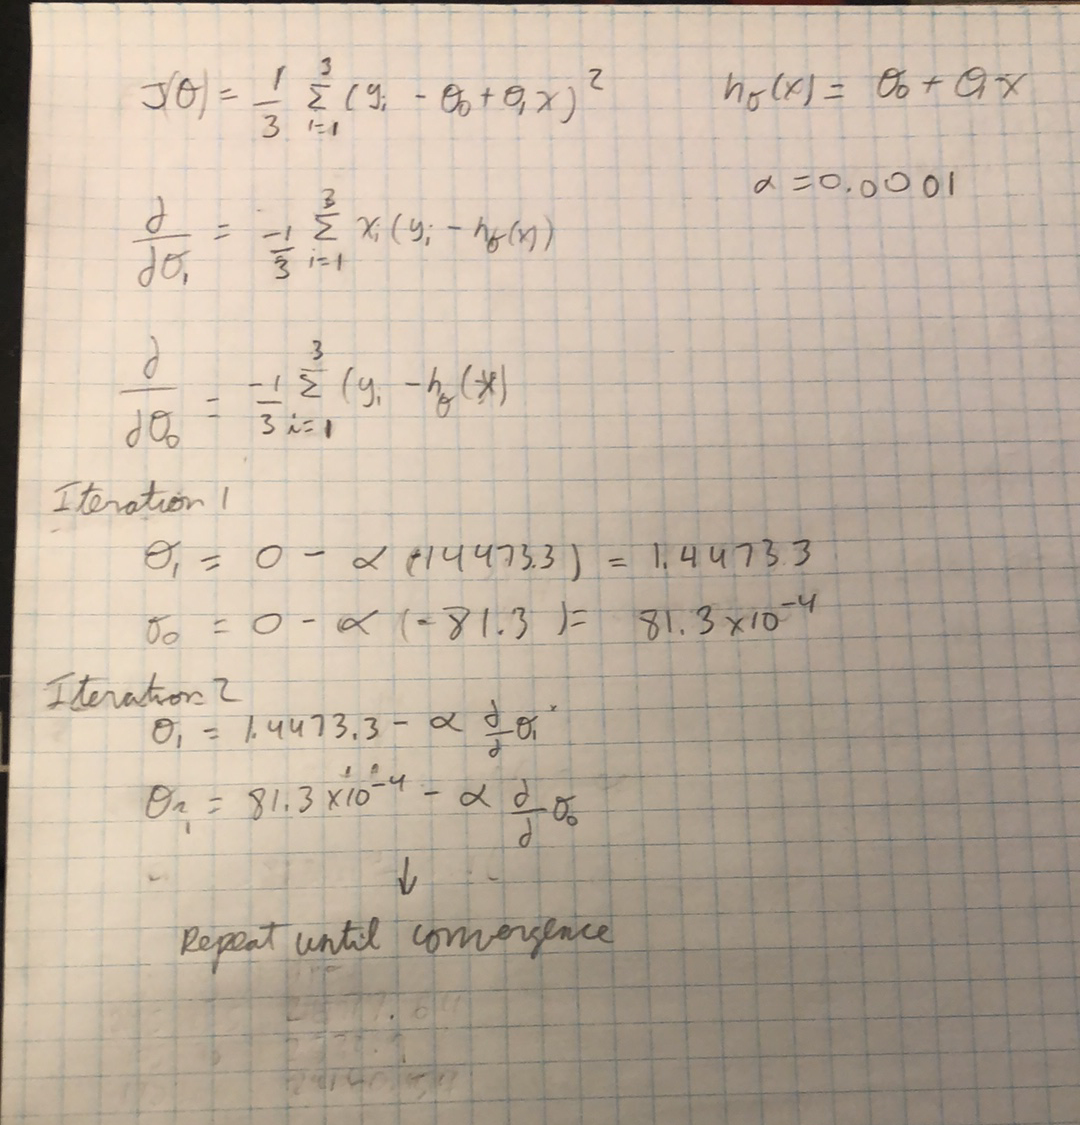 J(θ) = 1/3 Σ_{i=1}^{3} (y_i - θ_0 + θ_1 x)^2
h_θ(x) = θ_0 + θ_1 x
α = 0.0001
∂/∂θ_1 = -1/3 Σ_{i=1}^{3} x_i (y_i - h_θ(x))
∂/∂θ_0 = -1/3 Σ_{i=1}^{3} (y_i - h_θ(x)
Iteration 1
θ_1 = 0 - α (-14473.3) = 1.4473.3
θ_0 = 0 - α (-81.3) = 81.3 x 10^-4
Iteration 2
θ_1 = 1.4473.3 - α ∂/∂ θ_1
= 81.3 x 10^-4 - α ∂/∂ θ_0
↓
Repeat until convergence